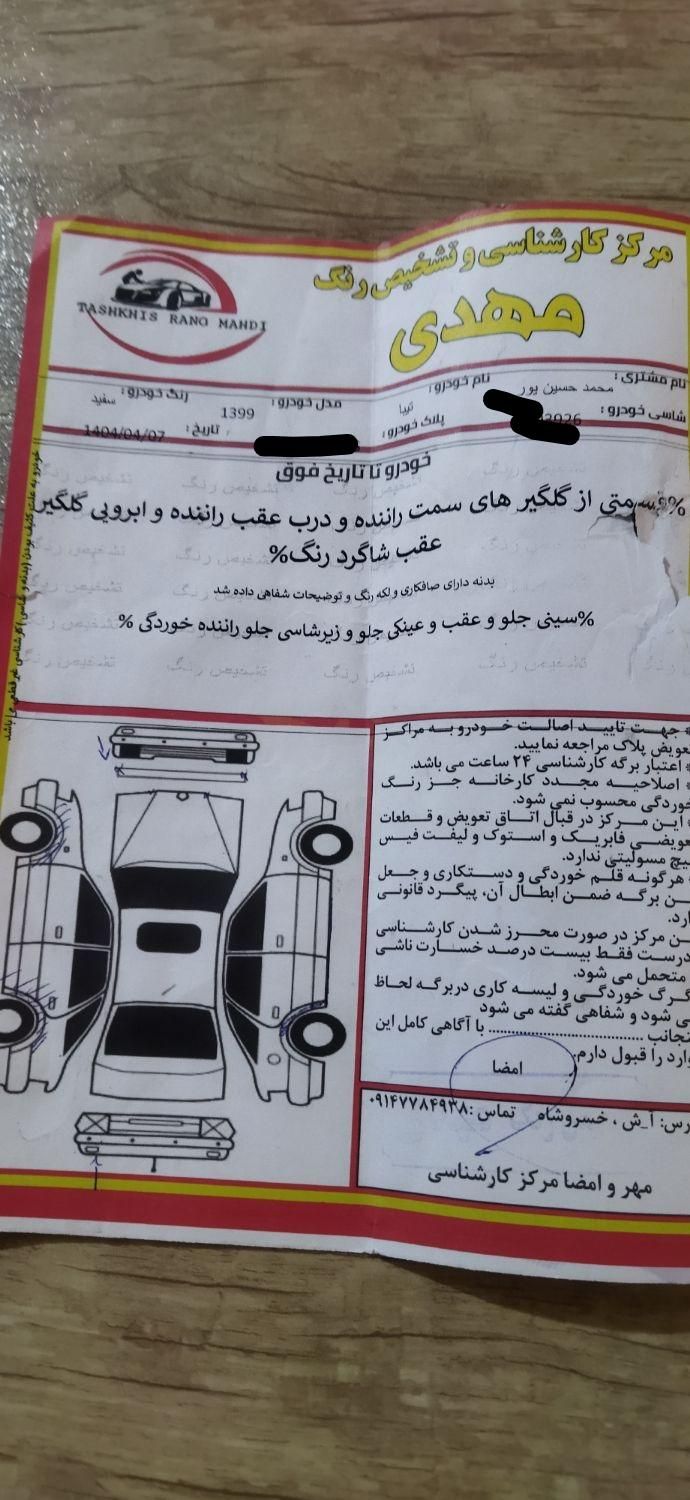 مرکز کارشناسی و تشخیص رنگ
مهدی
TASHKHIS RANG MAHDI
نام مشتری: محمد حسین پور
نام خودرو: تیبا
مدل خودرو: 1399
رنگ خودرو: سفید
شاسی خودرو:
پلاک خودرو:
تاریخ: 1404/04/07
خودرو تا تاریخ فوق
%قسمتی از گلگیر های سمت راننده و درب عقب راننده و ابرویی گلگیر
عقب شاگرد رنگ%
بدنه دارای صافکاری و لکه رنگ و توضیحات شفاهی داده شد
%سینی جلو و عقب و عینکی جلو و زیرشاسی جلو راننده خوردگی %
خودرو به علت کثیف بودن (بدنه و شاسی) کارشناسی غیرقطعی می باشد
* جهت تایید اصالت خودرو به مراکز
تعویض پلاک مراجعه نمایید.
* اعتبار برگه کارشناسی ۲۴ ساعت می باشد.
* اصلاحیه مجدد کارخانه جز رنگ
خوردگی محسوب نمی شود.
* این مرکز در قبال اتاق تعویض و قطعات
تعویضی فابریک و استوک و لیفت فیس
هیچ مسولیتی ندارد.
هرگونه قلم خوردگی و دستکاری و جعل
ین برگه ضمن ابطال آن، پیگرد قانونی
ارد.
ین مرکز در صورت محرز شدن کارشناسی
ادرست فقط بیست درصد خسارت ناشی
متحمل می شود.
گرگ خوردگی و لیسه کاری دربرگه لحاظ
ی شود و شفاهی گفته می شود
ینجانب .................... با آگاهی کامل این
وارد را قبول دارم.
امضا
درس: آ_ش ، خسروشاه تماس :۰۹۱۴۷۷۸۴۹۳۸
مهر و امضا مرکز کارشناسی